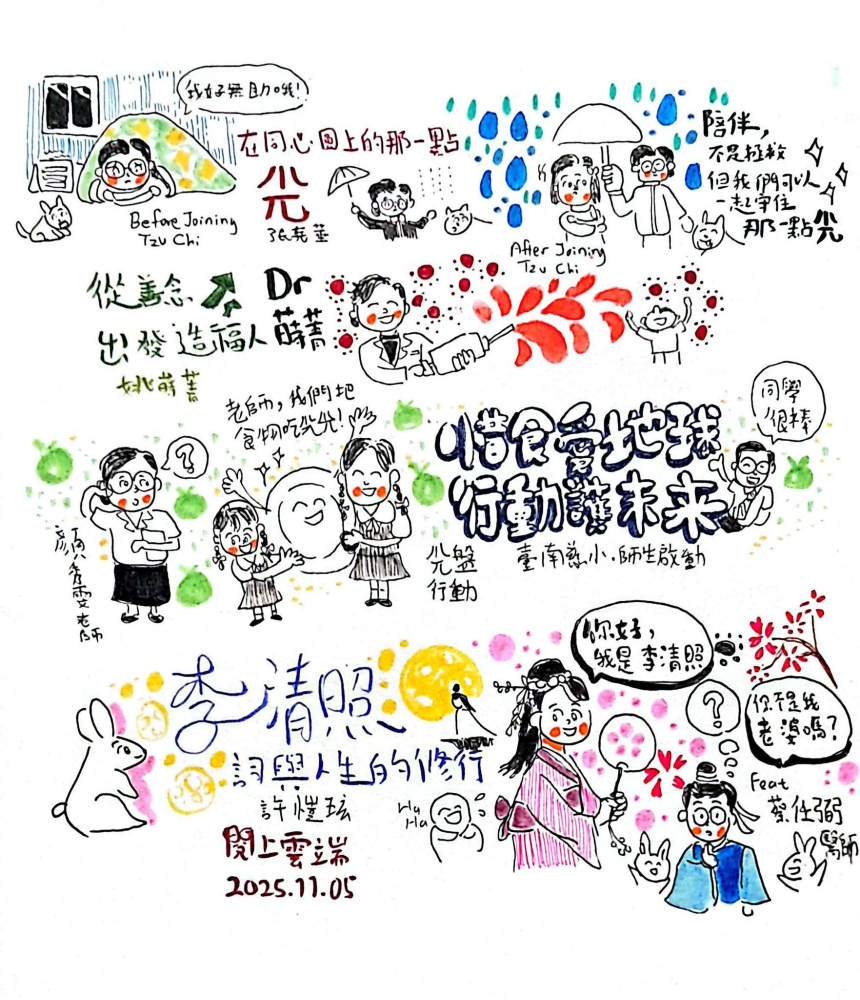 我好無助哦!
Before Joining
Tzu Chi
在同心圓上的那一點
光
After Joining
Tzu Chi
陪伴,
不是拯救
但我們可以
一起守住
那一點光
從善念
出發造福人
Dr
蒔菁
姚蒔菁
老師,我們把
食物吃光光!
?
顏秀雯老師
光盤
行動
惜食愛地球
行動護未來
臺南慈小·師生啟動
同學
很棒
李清照
詞與人生的修行
許愷玹
閱上雲端
2025.11.05
Ha
Ha
你好,
我是李清照
?
你不是我
老婆嗎?
Feat
蔡任弼
醫師